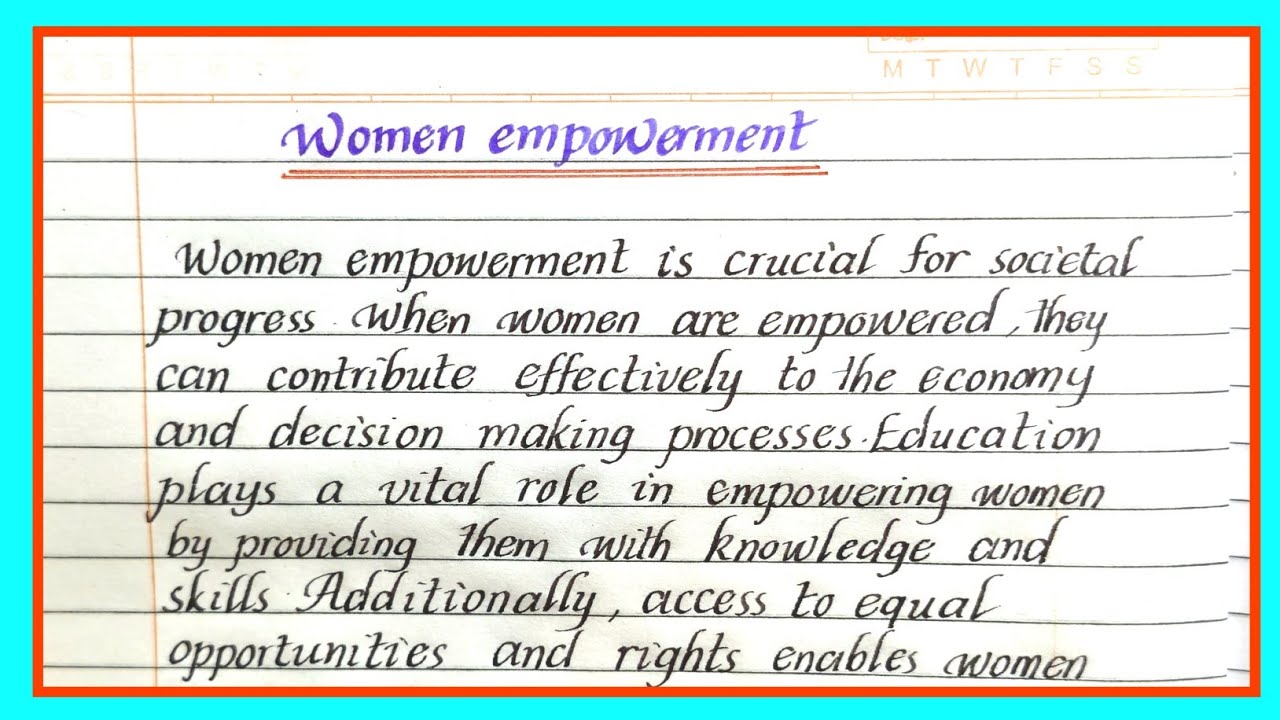 M T W T F S S
Women empowerment
Women empowerment is crucial for societal
progress. When women are empowered, they
can contribute effectively to the economy
and decision making processes. Education
plays a vital role in empowering women
by providing them with knowledge and
skills. Additionally, access to equal
opportunities and rights enables women